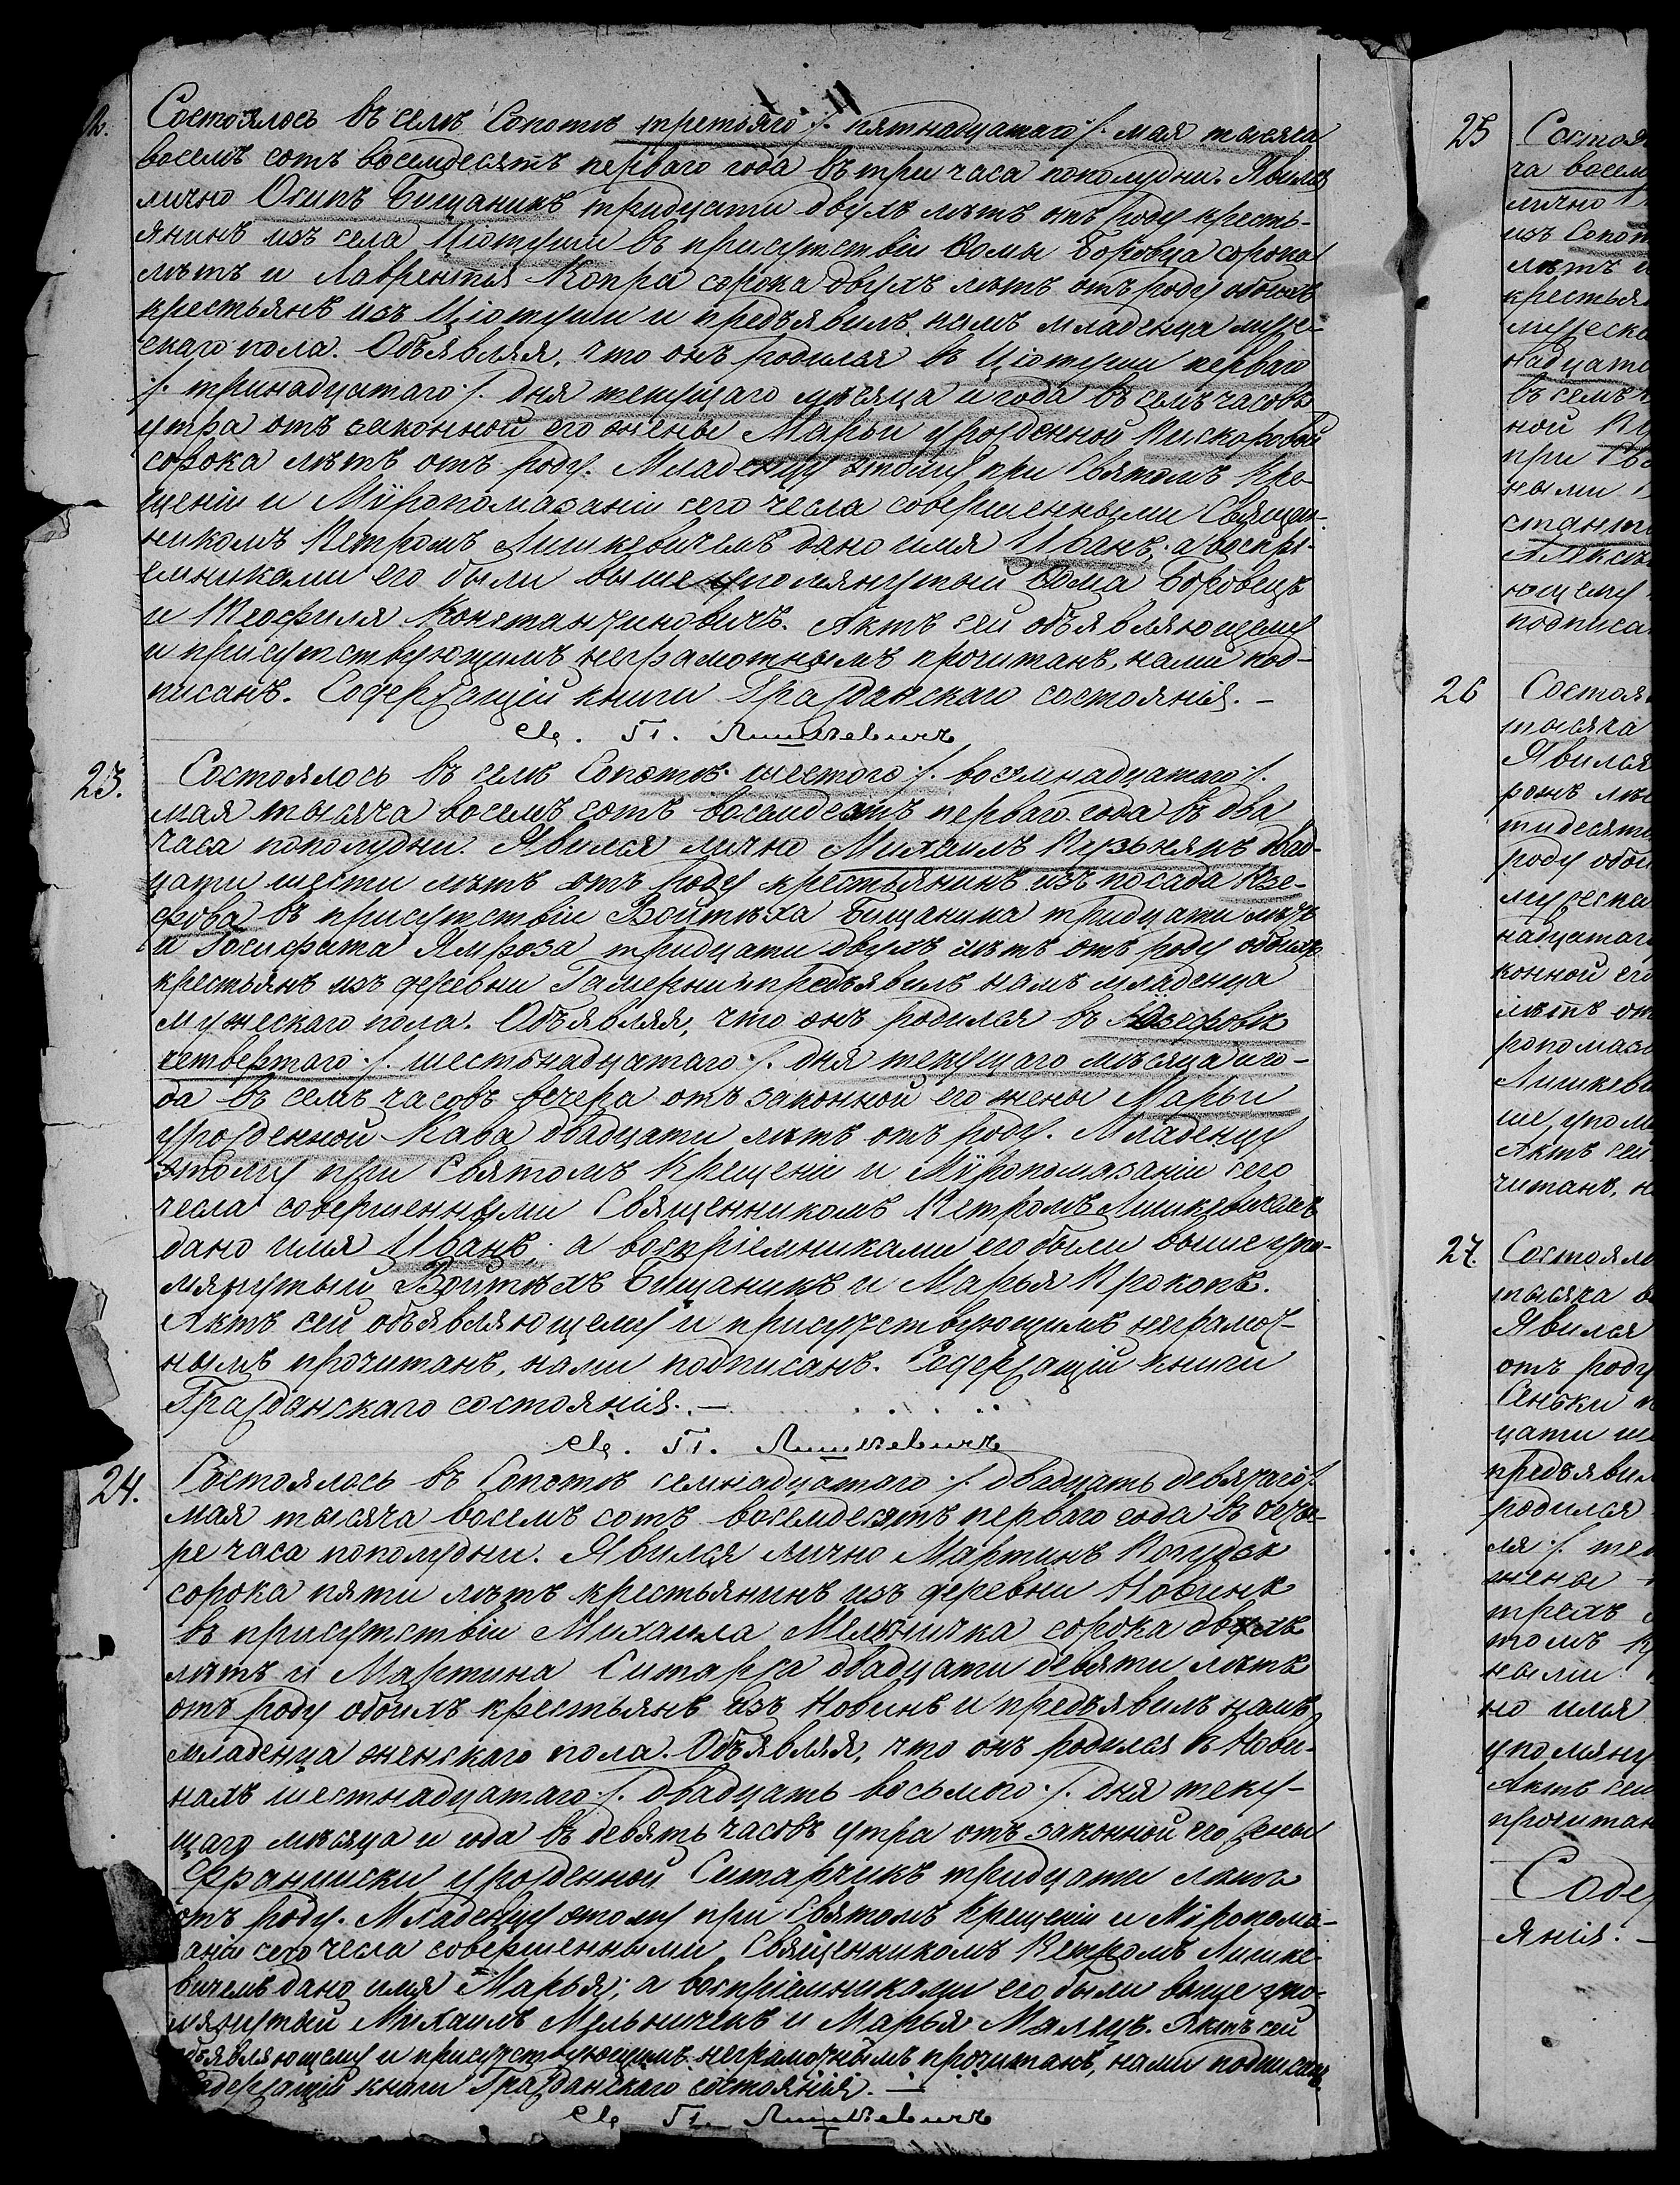 2. Состоялось въ селѣ Сопотѣ третьяго /. пятнадцатаго /. мая тысяча
восемъ сотъ восемдесятъ перваго года въ три часа пополудни. Явился
лично Осипъ Бищаникъ тридцати двухъ лѣтъ отъ роду кресть-
янинъ изъ села Ціотуши въ присутствіи Ѳомы Боровца сорока
лѣтъ и Лаврентія Копра сорока двухъ лѣтъ отъ роду обоихъ
крестьянъ изъ Ціотуши и предъявилъ намъ младенца муже-
скаго пола. Объявляя, что онъ родился въ Ціотуши перваго
/. тринадцатаго /. дня текущаго мѣсяца и года въ семъ часовъ
утра отъ законной его жены Марьи урожденной Пискоровой
сорока лѣтъ отъ роду. Младенцу этому при Святомъ Кре-
щеніи и Мѵропомазаніи сего числа совершенными Священ-
никомъ Петромъ Лишкевичемъ дано имя Иванъ, а воспрі-
емниками его были выше упомянутый Ѳома Боровецъ
и Теофиля Константиновичъ. Актъ сей объявляющему
и присутствующимъ неграмотнымъ прочитанъ, нами под-
писанъ. Содержащій книги Гражданскаго состоянія. –
Св. П. Лишкевичъ
23. Состоялось въ селѣ Сопотѣ шестого /. восемнадцатаго /.
мая тысяча восемъ сотъ восемдесятъ перваго года въ два
часа пополудни. Явился лично Михаилъ Кузьнякъ двад-
цати шести лѣтъ отъ роду крестьянинъ изъ посада Юзе-
фова въ присутствіи Войтѣха Бищаника тридцати лѣтъ
и Іосифата Ямроза тридцати двухъ лѣтъ отъ роду обоихъ
крестьянъ изъ деревни Гамерни и предъявилъ намъ младенца
мужескаго пола. Объявляя, что онъ родился въ Юзефовѣ
четвертаго /. шестьнадцатаго /. дня текущаго мѣсяца и го-
да въ семъ часовъ вечера отъ законной его жены Марьи
урожденной Кава двадцати лѣтъ отъ роду. Младенцу
этому при Святомъ Крещеніи и Мѵропомазаніи сего
числа совершенными Священникомъ Петромъ Лишкевичемъ
дано имя Иванъ; а воспріемниками его были выше упо-
мянутый Войтѣхъ Бищаникъ и Марья Прокопъ.
Актъ сей объявляющему и присутствующимъ неграмот-
нымъ прочитанъ, нами подписанъ. Содержащій книги
Гражданскаго состоянія. –
Св. П. Лишкевичъ
24. Состоялось въ Сопотѣ семнадцатаго /. двадцать девятаго /.
мая тысяча восемъ сотъ восемдесятъ перваго года въ четы-
ре часа пополудни. Явился лично Мартинъ Когудзь
сорока пяти лѣтъ крестьянинъ изъ деревни Новинк
въ присутствіи Михаила Мельничка сорока двухъ
лѣтъ и Мартина Ситаржа двадцати девяти лѣтъ
отъ роду обоихъ крестьянъ изъ Новинъ и предъявилъ намъ
младенца женскаго пола. Объявляя, что онъ родился въ Нови-
нахъ шестнадцатаго /. двадцать восьмого /. дня теку-
щаго мѣсяца и года въ девять часовъ утра отъ законной его жены
Франциски урожденной Ситарчикъ тридцати лѣтъ
отъ роду. Младенцу этому при Святомъ Крещеніи и Мѵропома-
аніи сего числа совершенными Священникомъ Петромъ Лишке-
вичемъ дано имя Марья; а воспріемниками его были выше упо-
мянутый Михаилъ Мельничекъ и Марья Малецъ. Актъ сей
объявляющему и присутствующимъ неграмотнымъ прочитанъ, нами подписанъ.
Содержащій книги Гражданскаго состоянія. –
Св. П. Лишкевичъ
25 Состоя
ча восем
лично
изъ Сопот
лѣтъ и
крестьян
мужеска
надцата
въ семъ
ной
при Св
ными
стант
Алексѣ
ющему
подписа
26 Состоя
тысяча
Явился
рокъ лѣ
тидесяти
роду обои
мужеска
надцатаг
конной его
лѣтъ от
ропомаз
Лишкеви
ше упом
Актъ сей
читанъ, н
27. Состояло
тысяча в
Явился
отъ роду
Сеньки
цати ше
предъявил
родился
ля /. тек
жены
трехъ
томъ К
ными
но имя
упомяну
Актъ сей
прочитан
Содер
янія. –